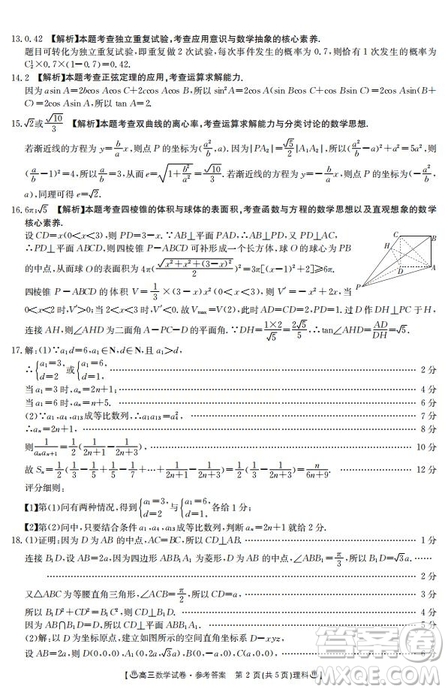 13. 0.42 【解析】本题考查独立重复试验,考查应用意识与数学抽象的核心素养.
题目可转化为独立重复试验,即重复做 2 次试验,每次事件发生的概率为 0.7,则恰有一次发生的概率为
C½×0.7×(1-0.7)=0.42.
14. 2 【解析】本题考查正弦定理的应用,考查运算求解能力.
因为 asin A=2bcos Acos C+2ccos Acos B,所以 sin²A=2cos A(sin Bcos C+sin Ccos B)=
2cos Asin A,所以 tan A=2.
15. √2或√10/3 【解析】本题考查双曲线的离心率,考查运算求解能力与分类讨论的数学思想.
若渐近线的方程为 y=b/a x,则点 P 的坐标为(a²/b,a).因为|PA₂|=√5/2|A₁A₂|,所以(a²/b-a)²+a²=5a²,则
(a/b-1)²=4,所以a/b=3,从而 e=√(1+b²/a²)=√10/3.若渐近线的方程为 y=-b/a x,则点 P 的坐标为(-a²/b,
a),同理可得 e=√2.
16. 6π;√5 【解析】本题考查四棱锥的体积与球体的表面积,考查函数与方程的数学思想以及直观想象的数学
核心素养.
设 CD=x(0<x<3),则 PD=3-x.∵AB⊥平面 PAD,∴AB⊥PD,又 PD⊥AD,
∴PD⊥平面 ABCD,则四棱锥 P-ABCD 可补形成一个长方体,球 O 的球心为 PB
的中点,从而球 O 的表面积为 4π(√(x²+x²+(3-x)²)/2)²=3π[(x-1)²+2]≥6π.
四棱锥 P-ABCD 的体积为 V=1/3(3-x)x²(0<x<3),则 V′=-x²+2x.当
0<x<2 时,V′>0;当 2<x<3 时,V′<0.故 Vmax=V(2),此时 AD=CD=2,PD=1.过 D 作 DH⊥PC 于 H,
连接 AH,则∠AHD 为二面角 A-PC-D 的平面角.∵DH=1×2/√5=2√5/5,∴tan∠AHD=AD/DH=√5.
17. 解:(1)∵a₁d=6,a₁∈N,d∈N,且 a₁>d,
∴{a₁=3,d=2或{a₁=6,d=1. 2 分
当 a₁=3 时,aₙ=2n+1; 4 分
当 a₁=6 时,aₙ=n+5. 6 分
(2)∵a₁,a₄,a₁₃成等比数列,∴a₁a₁₃=a₄², 7 分
∴aₙ=2n+1. 8 分
则1/(aₙaₙ₊₁)=1/2(1/(2n+1)-1/(2n+3)). 10 分
故 Sₙ=1/2(1/3-1/5+1/5-1/7+…+1/(2n+1)-1/(2n+3))=1/2(1/3-1/(2n+3))=n/(6n+9). 12 分
评分细则:
【1】第(1)问有两种情况,得到{a₁=3,d=2和{a₁=6,d=1,各给 1 分;
【2】第(2)问中,只要结合条件 a₁,a₄,a₁₃成等比数列,得到
18. (1)证明:因为 D 为 AB 的中点,AC=BC,所以 CD⊥AB. 1 分
连接 B₁D,设 AB=2a,因为四边形 ABB₁A₁为菱形,D 为 AB 的中点,∠ABB₁=π/3,所以 B₁D=√3a.
2 分
又△ABC 为等腰直角三角形,
所以 B₁D²+CD²=B₁C²,所以 B₁D⊥CD.
因为 AB∩B₁D=D,所以 CD⊥平面
(2)解:以 D 为坐标原点,建立
连接 B₁D,设 AB=2a,因为∠ABB₁=π/3,所以 B₁D=√3a.
高三数学试卷·参考答案 第 2 页(共 5 页)理科